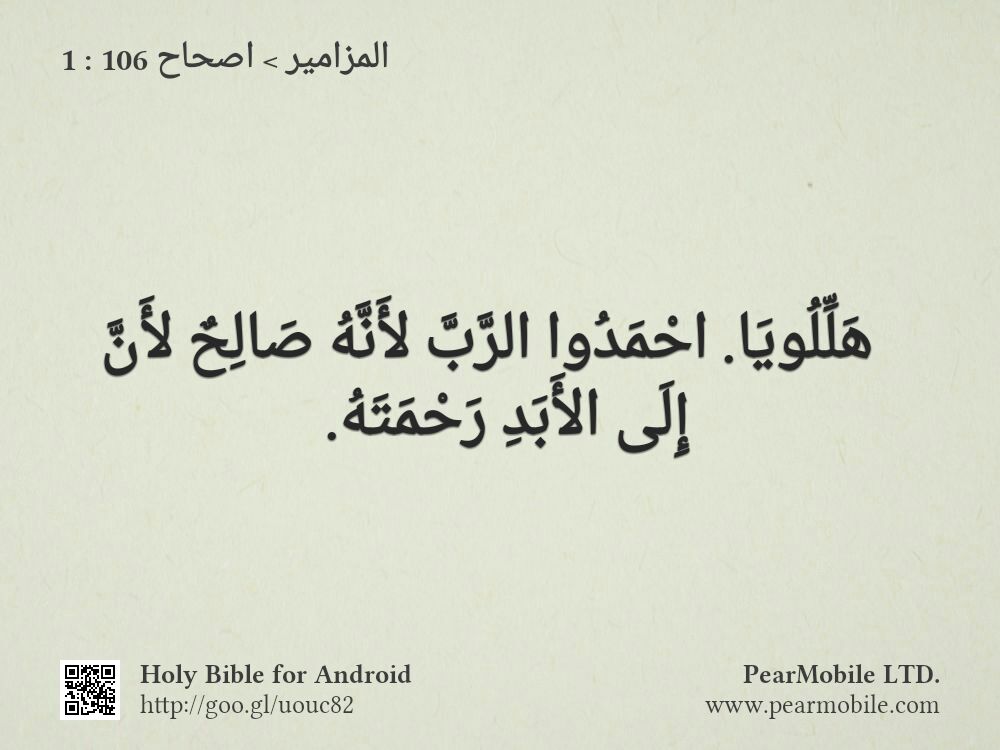 المزامير > اصحاح 106 : 1
هَلِّلُويَا. احْمَدُوا الرَّبَّ لأَنَّهُ صَالِحٌ لأَنَّ
إِلَى الأَبَدِ رَحْمَتَهُ.
Holy Bible for Android
http://goo.gl/uouc82
PearMobile LTD.
www.pearmobile.com